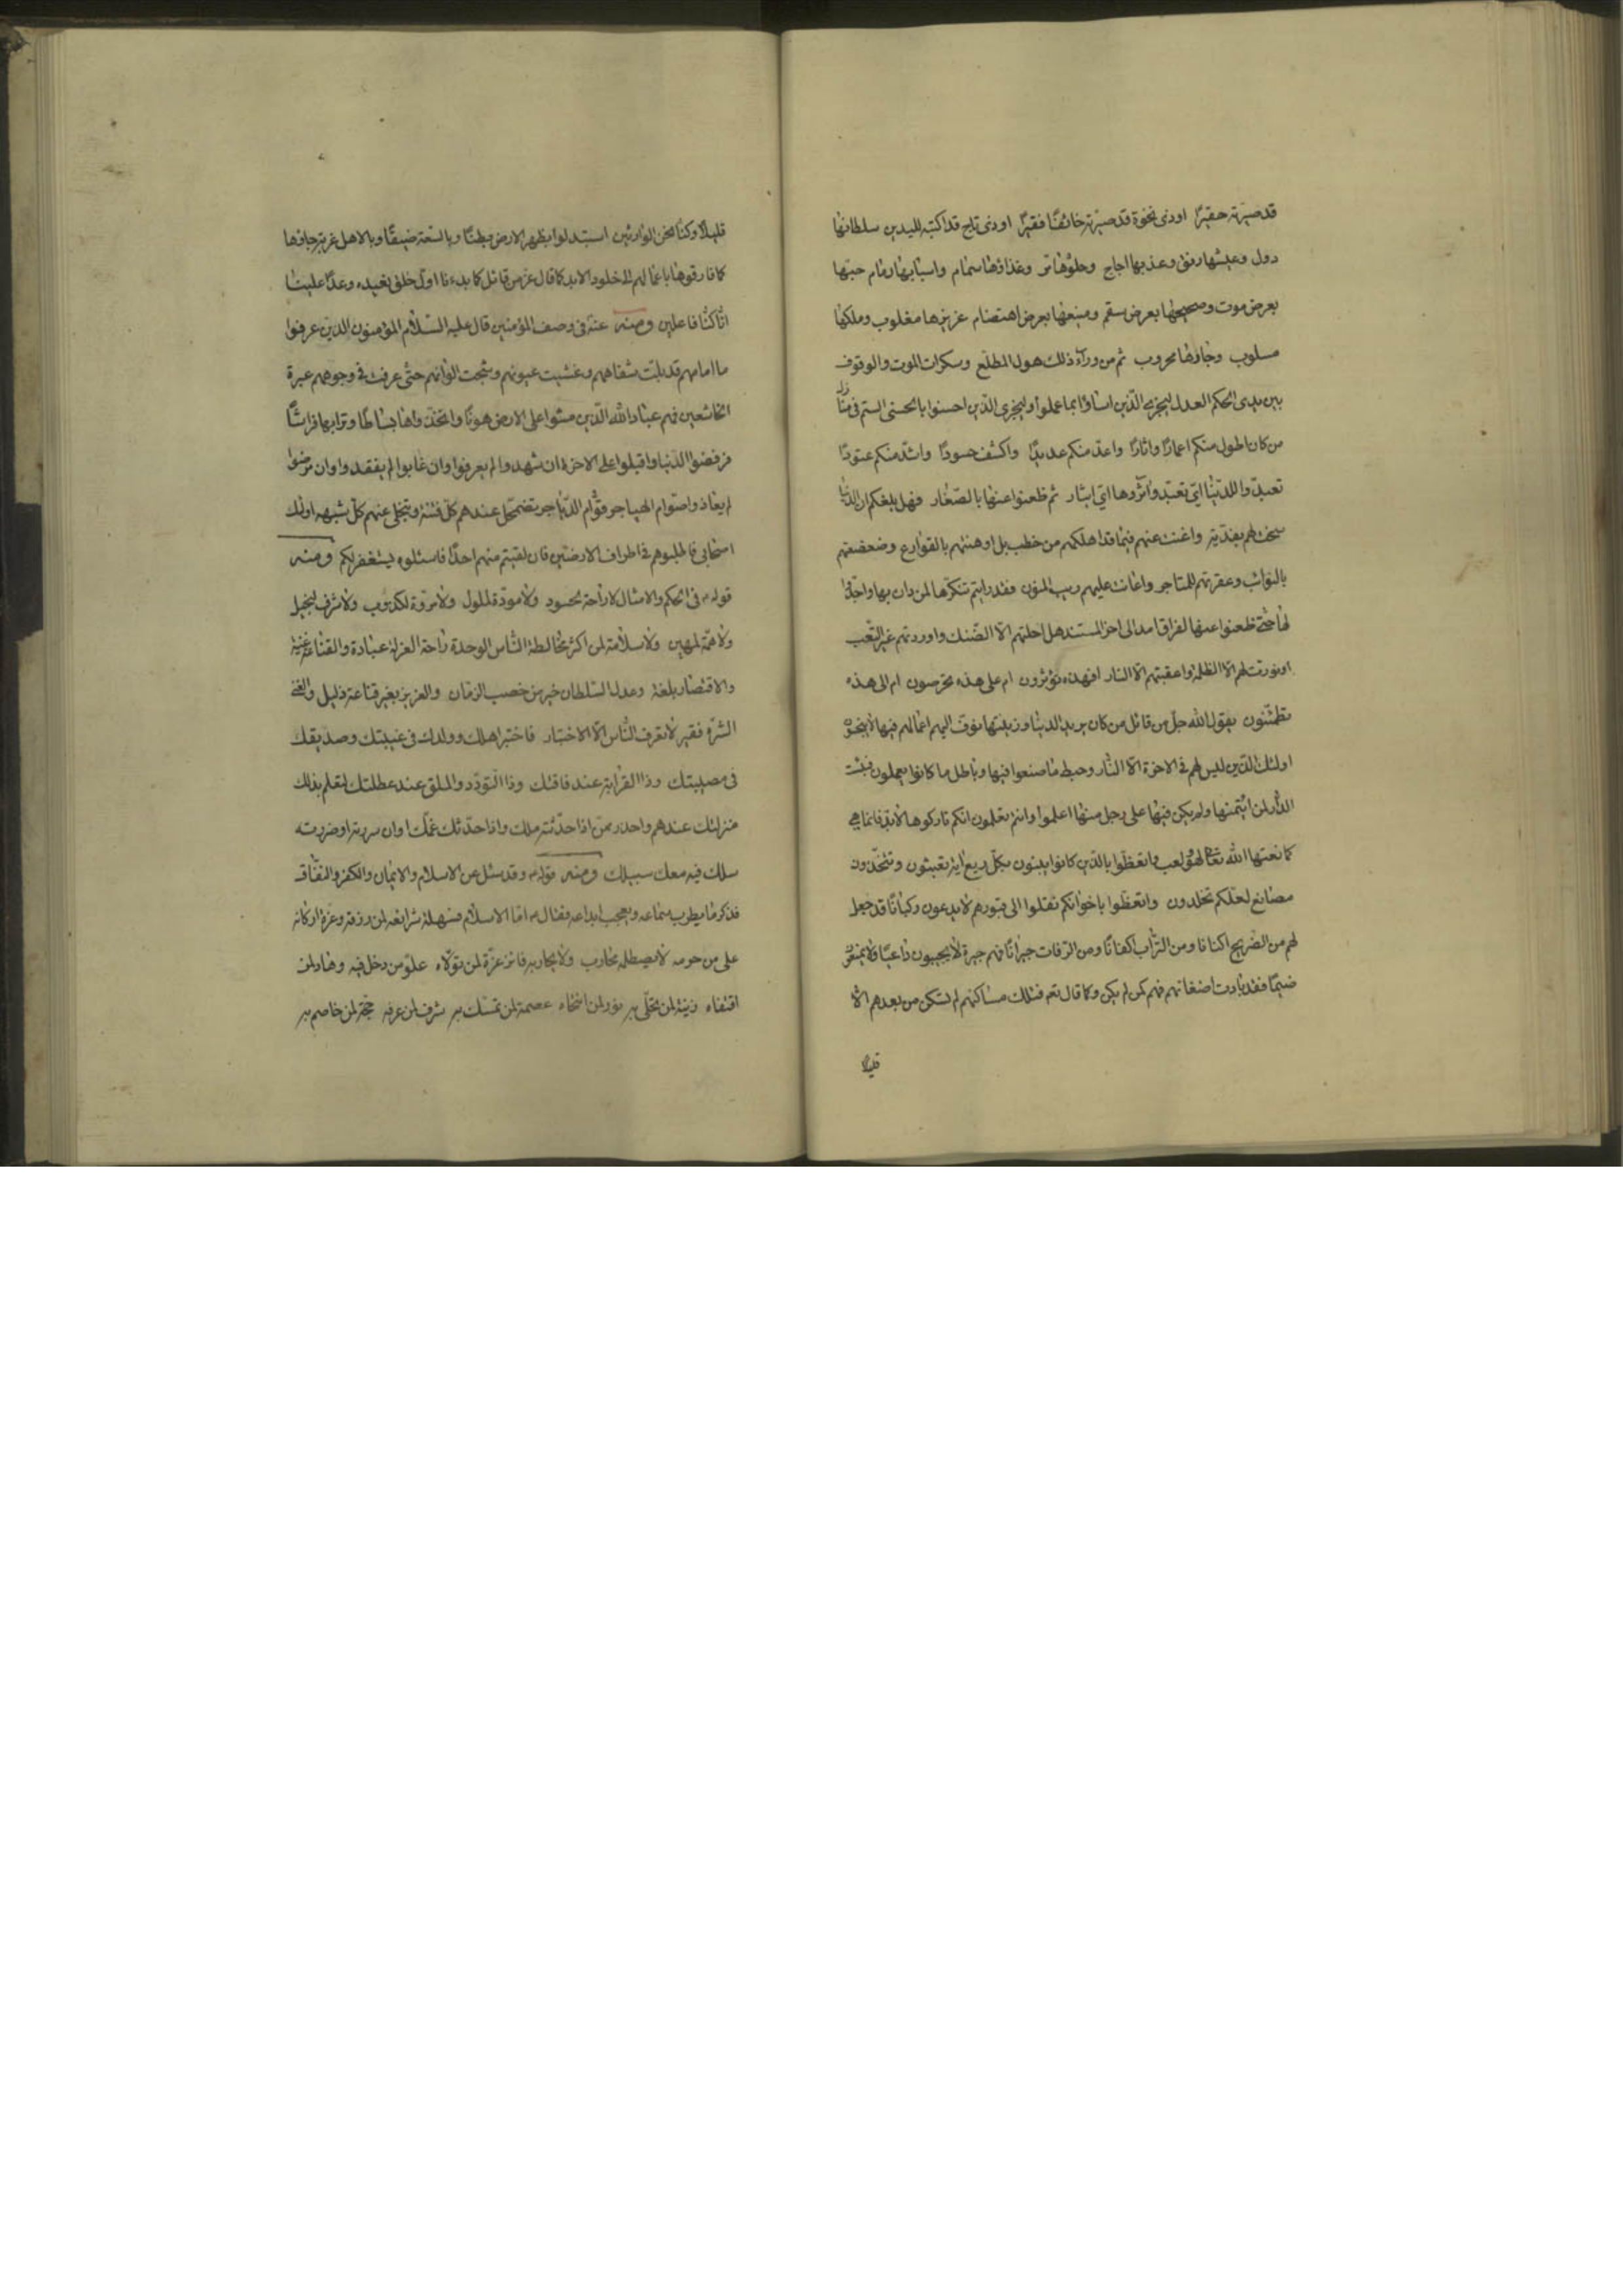 قد صيرته حقيرًا اوذى نخوة قد صيرته خائفًا فقيرًا اوذى تاج قد اكبته لليدين سلطانها
دول وعيشها رنق وعذبها اجاج وحلوها مر وغذاؤها سمام واسبابها رمام حيها
بعرض موت وصحيحها بعرض سقم ومنيعها بعرض اهتضام عزيزها مغلوب وملكها
مسلوب وجارها محروب ثم من ورآء ذلك هول المطلع وسكرات الموت والوقوف
بين يدى الحكم العدل ليجزى الذين اساؤا بما عملوا وليجزى الذين احسنوا بالحسنى الستم فى منازل
من كان اطول منكم اعمارًا واثارًا واعدّ منكم عديدًا واكثف جنودًا واشدّ منكم عنودًا
تعبدوا للدنيا اىّ تعبّد وآثروها اىّ ايثار ثم ظعنوا عنها بالصّغار فهل بلغكم ان الدنيا
سخت لهم بفدية واغنت عنهم فيما قد اهلكهم من خطب بل اوهنتهم بالقوارع وضعضعتهم
بالنوائب وعقرتهم للمناخر واعانت عليهم ريب المنون فقد رايتم تنكّرها لمن دان بها واخلد
لها حتّى ظعنوا عنها لفراق امد الى اخر المستند هل احلتهم الّا الضّنك واوردتهم غير التّعب
اونورت لهم الا الظلمة واعقبتهم الّا النار افهذه تؤثرون ام على هذه تحرصون ام الى هذه
تطمئنّون يقول الله جلّ من قائل من كان يريد الدنيا وزينتها نوف اليهم اعمالهم فيها لا يبخسون
اولئك الذين ليس لهم فى الاخرة الا النار وحبط ما صنعوا فيها وباطل ما كانوا يعملون فبئست
الدار لمن لم يتهمها ولم يكن فيها على وجل منها اعلموا وانتم تعلمون انكم تاركوها لابدّ فانما هى
كما نعتها الله تعالى لهو ولعب واتعظّوا بالذين كانوا يبنون بكلّ ريع اية تعبثون وتتّخذون
مصانع لعلكم تخلدون واتعظّوا باخوانكم نقلوا الى قبورهم لا يدعون ركبانًا قد جعل
لهم من الضريح اكنانا ومن التّراب اكفانًا ومن الرفات جيرانًا فهم جيرة لا يجيبون داعيًا ولا يمنعون
ضيمًا فقد بادت اضغانهم فهم كمن لم يكن وكما قال تعه فتلك مساكنهم لم تسكن من بعدهم الّا
قليلا
قليلًا وكنّا نحن الوارثين استبدلوا بظهر الارض بطنًا وبالسّعة ضيقًا وبالاهل غربة جاؤها
كما فارقوها باعمالهم الى خلود الابد كما قال عز من قائل كما بدءنا اول خلق نعيده وعدًا علينا
انّا كنّا فاعلين ومنه عنه فى وصف المؤمنين قال عليه السّلام المؤمنون الذين عرفوا
ما امامهم قد بلت شفاههم وغشيت عيونهم وشحبت الوانهم حتّى عرفت فى وجوههم غبرة
الخاشعين فهم عباد الله الذين مشوا على الارض هونًا واتخذوها بساطًا وترابها فراشًا
فرفضوا الدنيا واقبلوا على الاخرة ان شهدوا لم يعرفوا وان غابوا لم يفقدوا وان مرضوا
لم يعادوا صوّام الهواجر قوّام الدّياجر يضمحلّ عندهم كلّ فتنة وينجلى عنهم كلّ شبهه اولئك
اصحابى فاطلبوهم فى اطراف الارضين فان لقيتم منهم احدًا فاسئلوه يستغفر لكم ومنه
قوله فى الحكم والامثال لا راحة لحسود ولا مودّة لملول ولا مروّة لكذوب ولا شرف لبخيل
ولا همّة لمهين ولا سلامة لمن اكثر مخالطة النّاس الوحدة راحة العزلة عبادة والقناعة غنية
والاقتصار بلغة وعدل السّلطان خير من خصب الزمان والعزيز بغير قناعة ذليل والغنى
الشره فقير لا تعرف النّاس الّا الاختبار فاختبر اهلك وولدك فى غيبتك وصديقك
فى مصيبتك وذا القرابة عند فاقتك وذا التودّد والملق عند عطلتك لتعلم بذلك
منزلتك عندهم واحذر ممن اذا حدثته ملّك واذا حدّثك غمّك وان سررته او ضررته
سلك فيه معك سبيلك ومنه قوله وقد سئل عن الاسلام والايمان والكفر والنفاق
فذكر ما يطرب سماعه ويعجب ابداعه فقال اما الاسلام فسهلة شرايعه لمن ورده وعزة اركانه
على من حومه لا يصطله محارب ولا يحاربه فانه عزة لمن تولّاه علوّ من دخل فيه وهاد لمن
اقتفاه وزينة لمن تحلّى به نور لمن انتحاه عصمة لمن تمسّك به شرف لمن عرفه حجّة لمن خاصم به